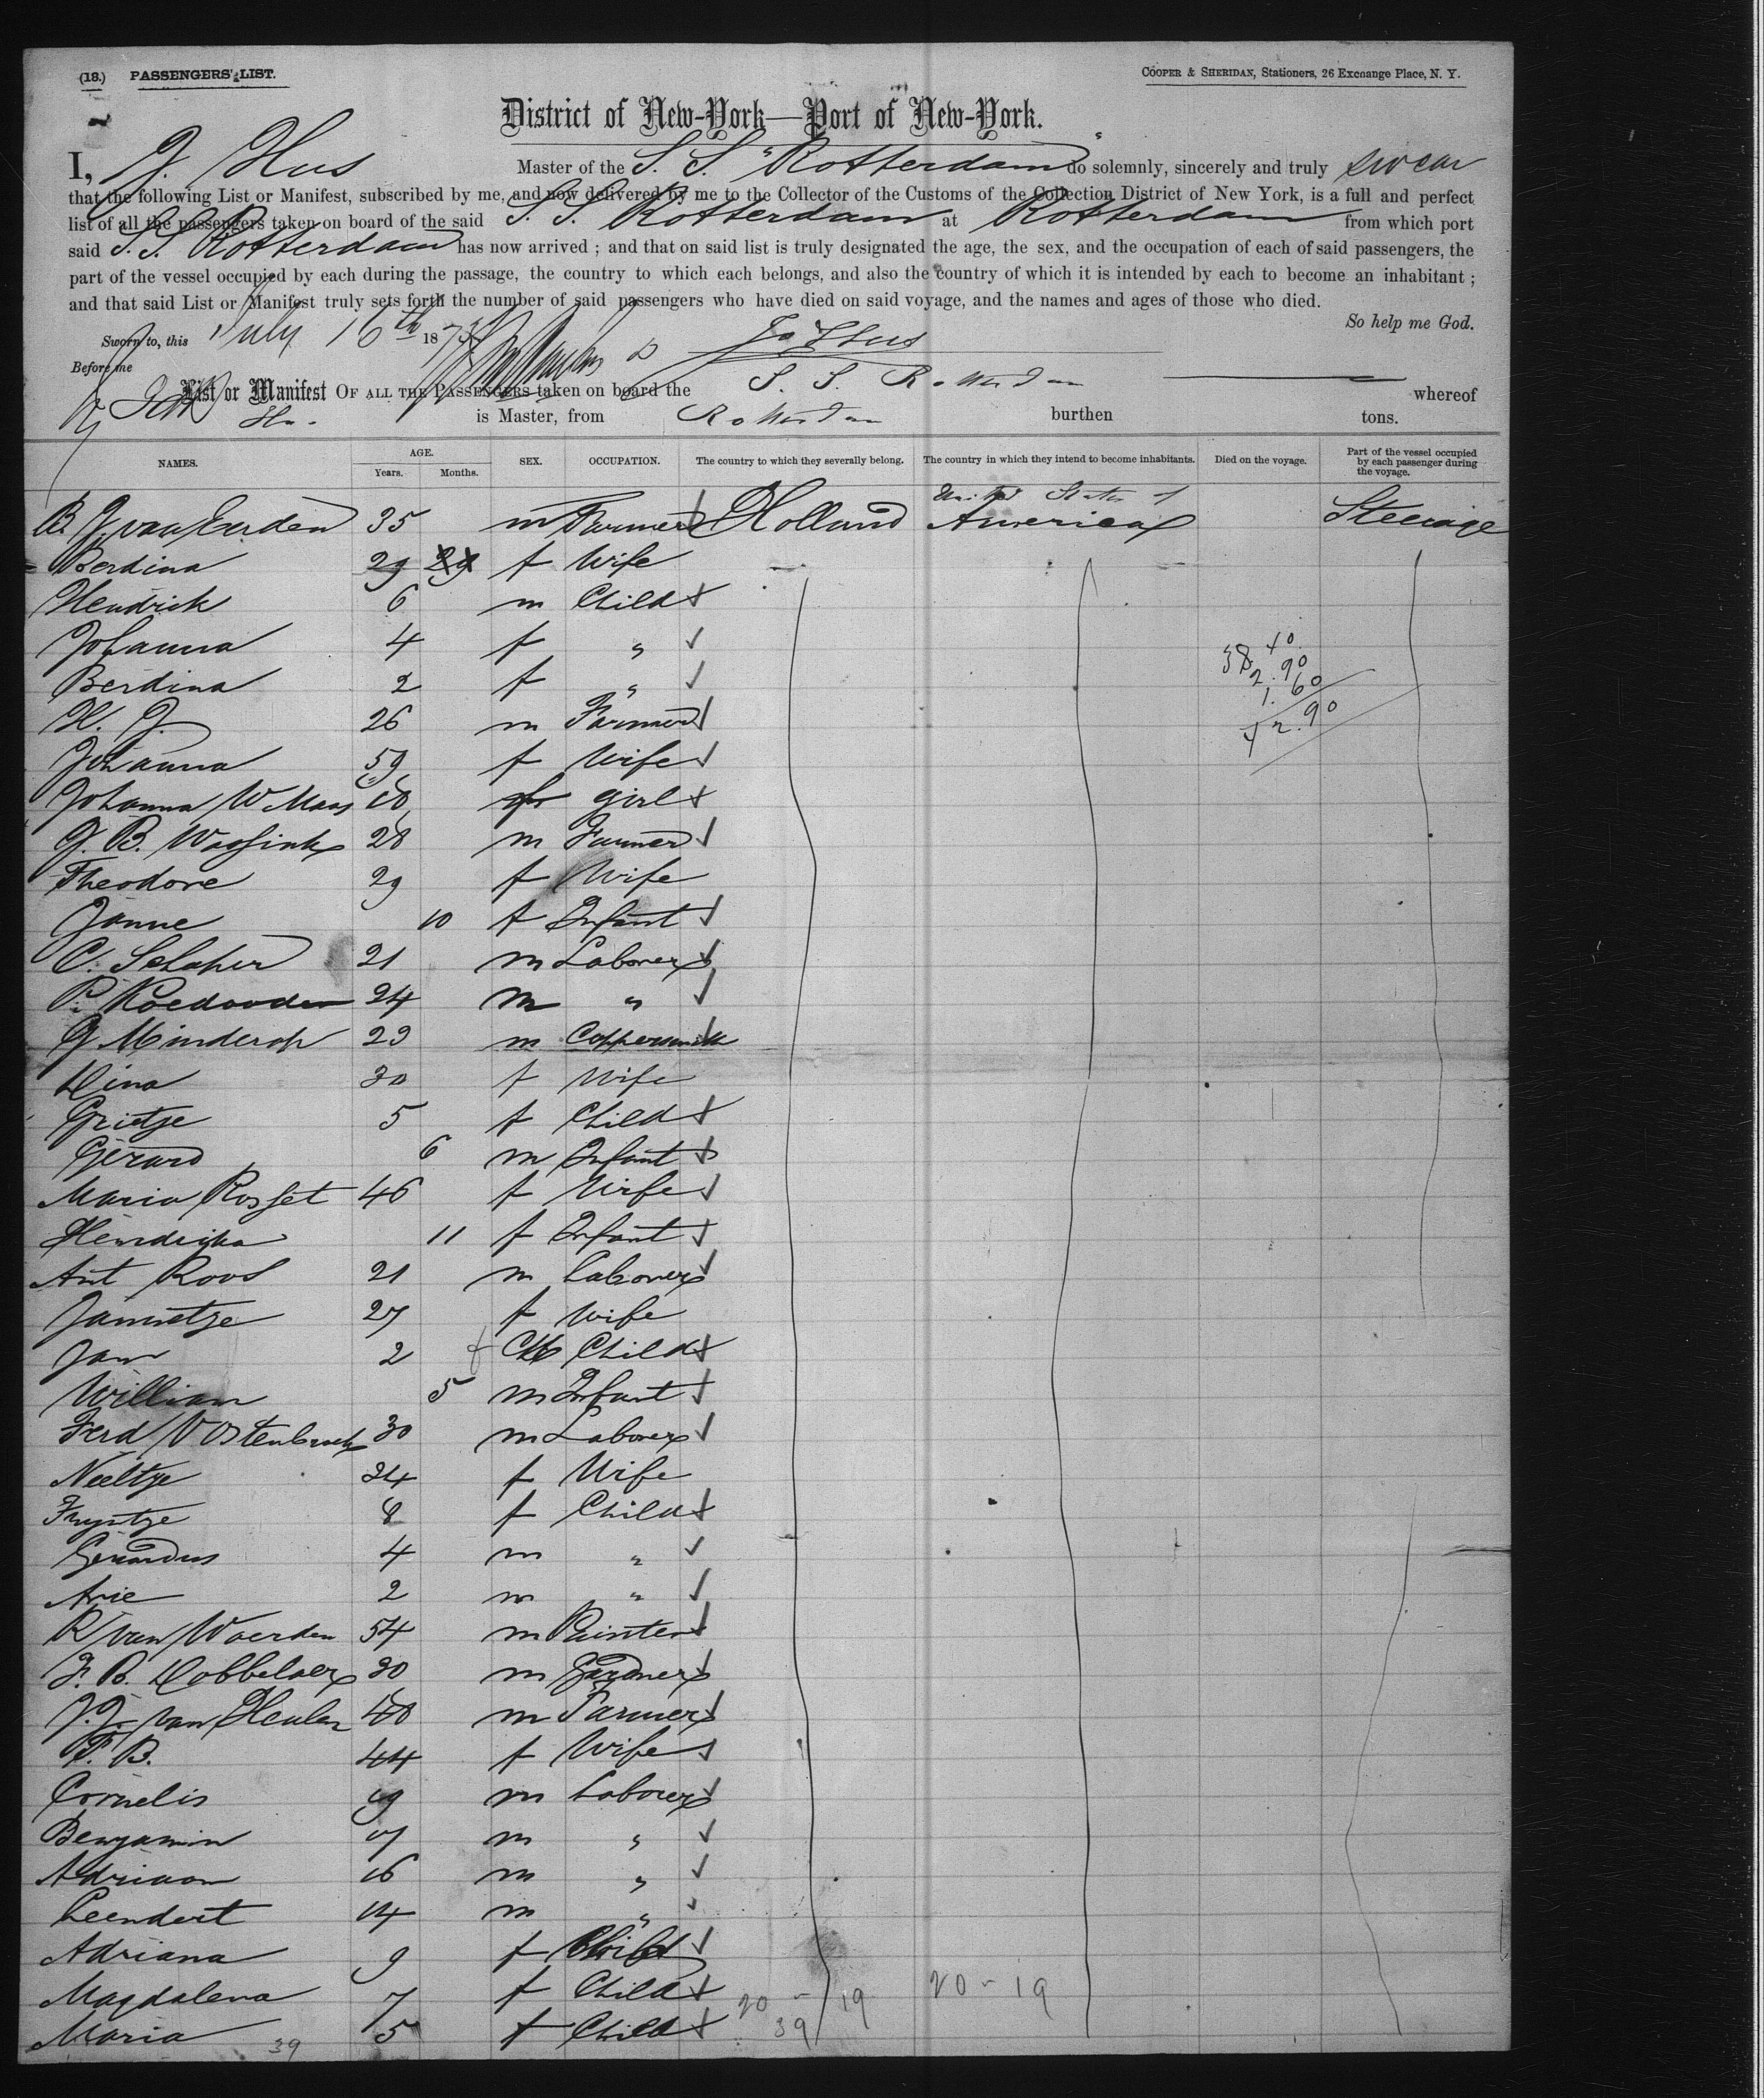 (18.) PASSENGERS' LIST. COOPER & SHERIDAN, Stationers, 26 Exchange Place, N. Y.
District of New-York—Port of New-York.
I, J. Hus Master of the S. S. "Rotterdam" do solemnly, sincerely and truly swear
that the following List or Manifest, subscribed by me, and now delivered by me to the Collector of the Customs of the Collection District of New York, is a full and perfect
list of all the passengers taken on board of the said S. S. Rotterdam at Rotterdam from which port
said S. S. Rotterdam has now arrived ; and that on said list is truly designated the age, the sex, and the occupation of each of said passengers, the
part of the vessel occupied by each during the passage, the country to which each belongs, and also the country of which it is intended by each to become an inhabitant ;
and that said List or Manifest truly sets forth the number of said passengers who have died on said voyage, and the names and ages of those who died.
So help me God.
Sworn to, this July 16th 187 Jo Hus
Before me
List or Manifest OF ALL THE PASSENGERS taken on board the S. S. Rotterdam whereof
is Master, from Rotterdam burthen tons.
NAMES. AGE. Years. Months. SEX. OCCUPATION. The country to which they severally belong. The country in which they intend to become inhabitants. Died on the voyage. Part of the vessel occupied by each passenger during the voyage.
B. J. van Eerden 35 m Farmer Holland United States of America Steerage
Berdina 29 29 f Wife
Hendrik 6 m Child
Johanna 4 f "
Berdina 2 f "
H. J. 26 m Farmer
Johanna 59 f Wife
Johanna W Maas 18 f girl
G. B. Wassink 28 m Farmer
Theodore 29 f Wife
Janne 10 f Infant
C. Schaper 21 m Laborer
P. Roedooder 24 m "
G Minderop 23 m Coppersmith
Dina 30 f Wife
Grietje 5 f Child
Gerard 6 m Infant
Maria Rosset 46 f Wife
Hendrika 11 f Infant
Ant Roos 21 m Laborer
Jannetje 27 f Wife
Jan 2 f Child
William 5 m Infant
Ferd V Ostenbroek 30 m Laborer
Neeltje 34 f Wife
Fryntje 8 f Child
Gerardus 4 m "
Arie 2 m "
R van Woerden 54 m Painter
F. B. Dobbelaer 30 m Gardner
J. J. van Heulen 48 m Farmer
P. B. 44 f Wife
Cornelis 19 m Laborer
Benjamin 17 m "
Adriaan 16 m "
Leendert 14 m "
Adriana 9 f Child
Magdalena 7 f Child 20 - 19 20 - 19
Maria 39 5 f Child 39
38.40
2.90
1.60
42.90